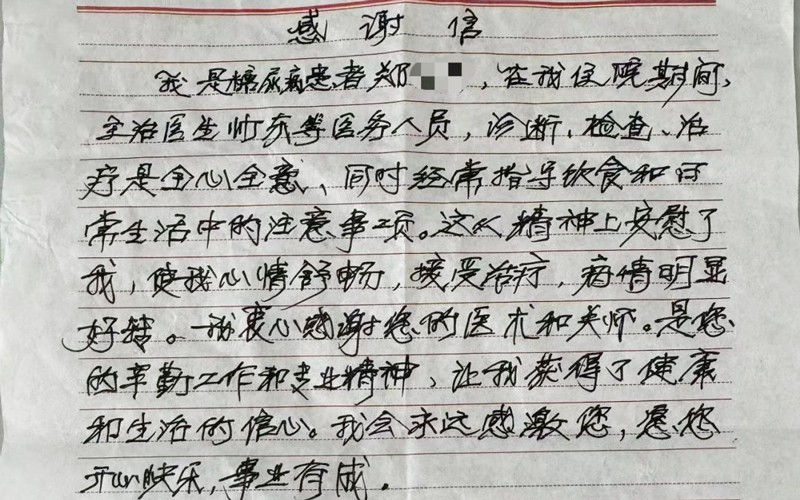 感谢信
我是糖尿病患者郑，在我住院期间，
主治医生帅东等医务人员，诊断、检查、治
疗是全心全意、同时经常指导饮食和日
常生活中的注意事项。这从精神上安慰了
我，使我心情舒畅，接受治疗，病情明显
好转。我衷心感谢您的医术和关怀。是您
的辛勤工作和专业精神，让我获得了健康
和生活的信心。我会永远感激您，愿您
开心快乐，事业有成。